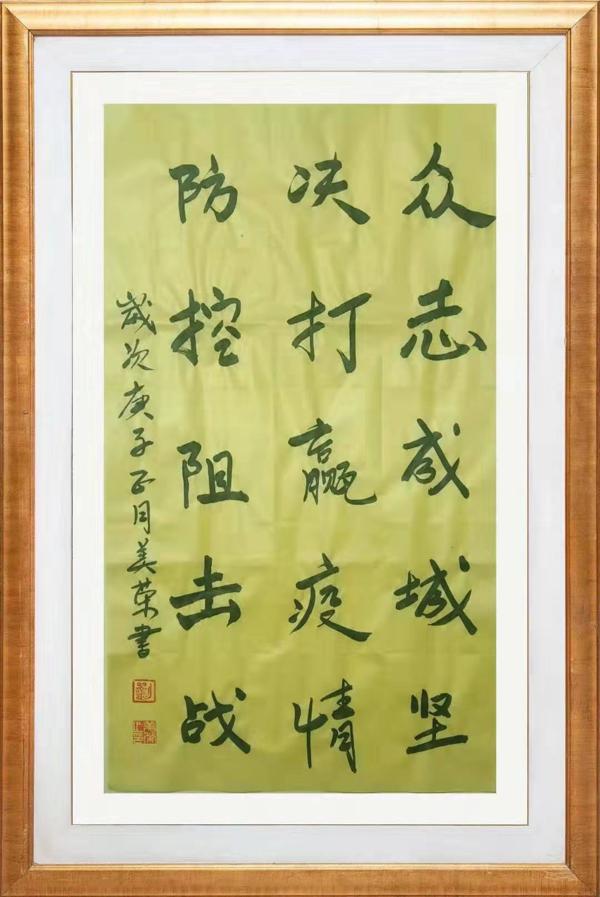 众志成城坚
决打赢疫情
防控阻击战
岁次庚子正月美荣書